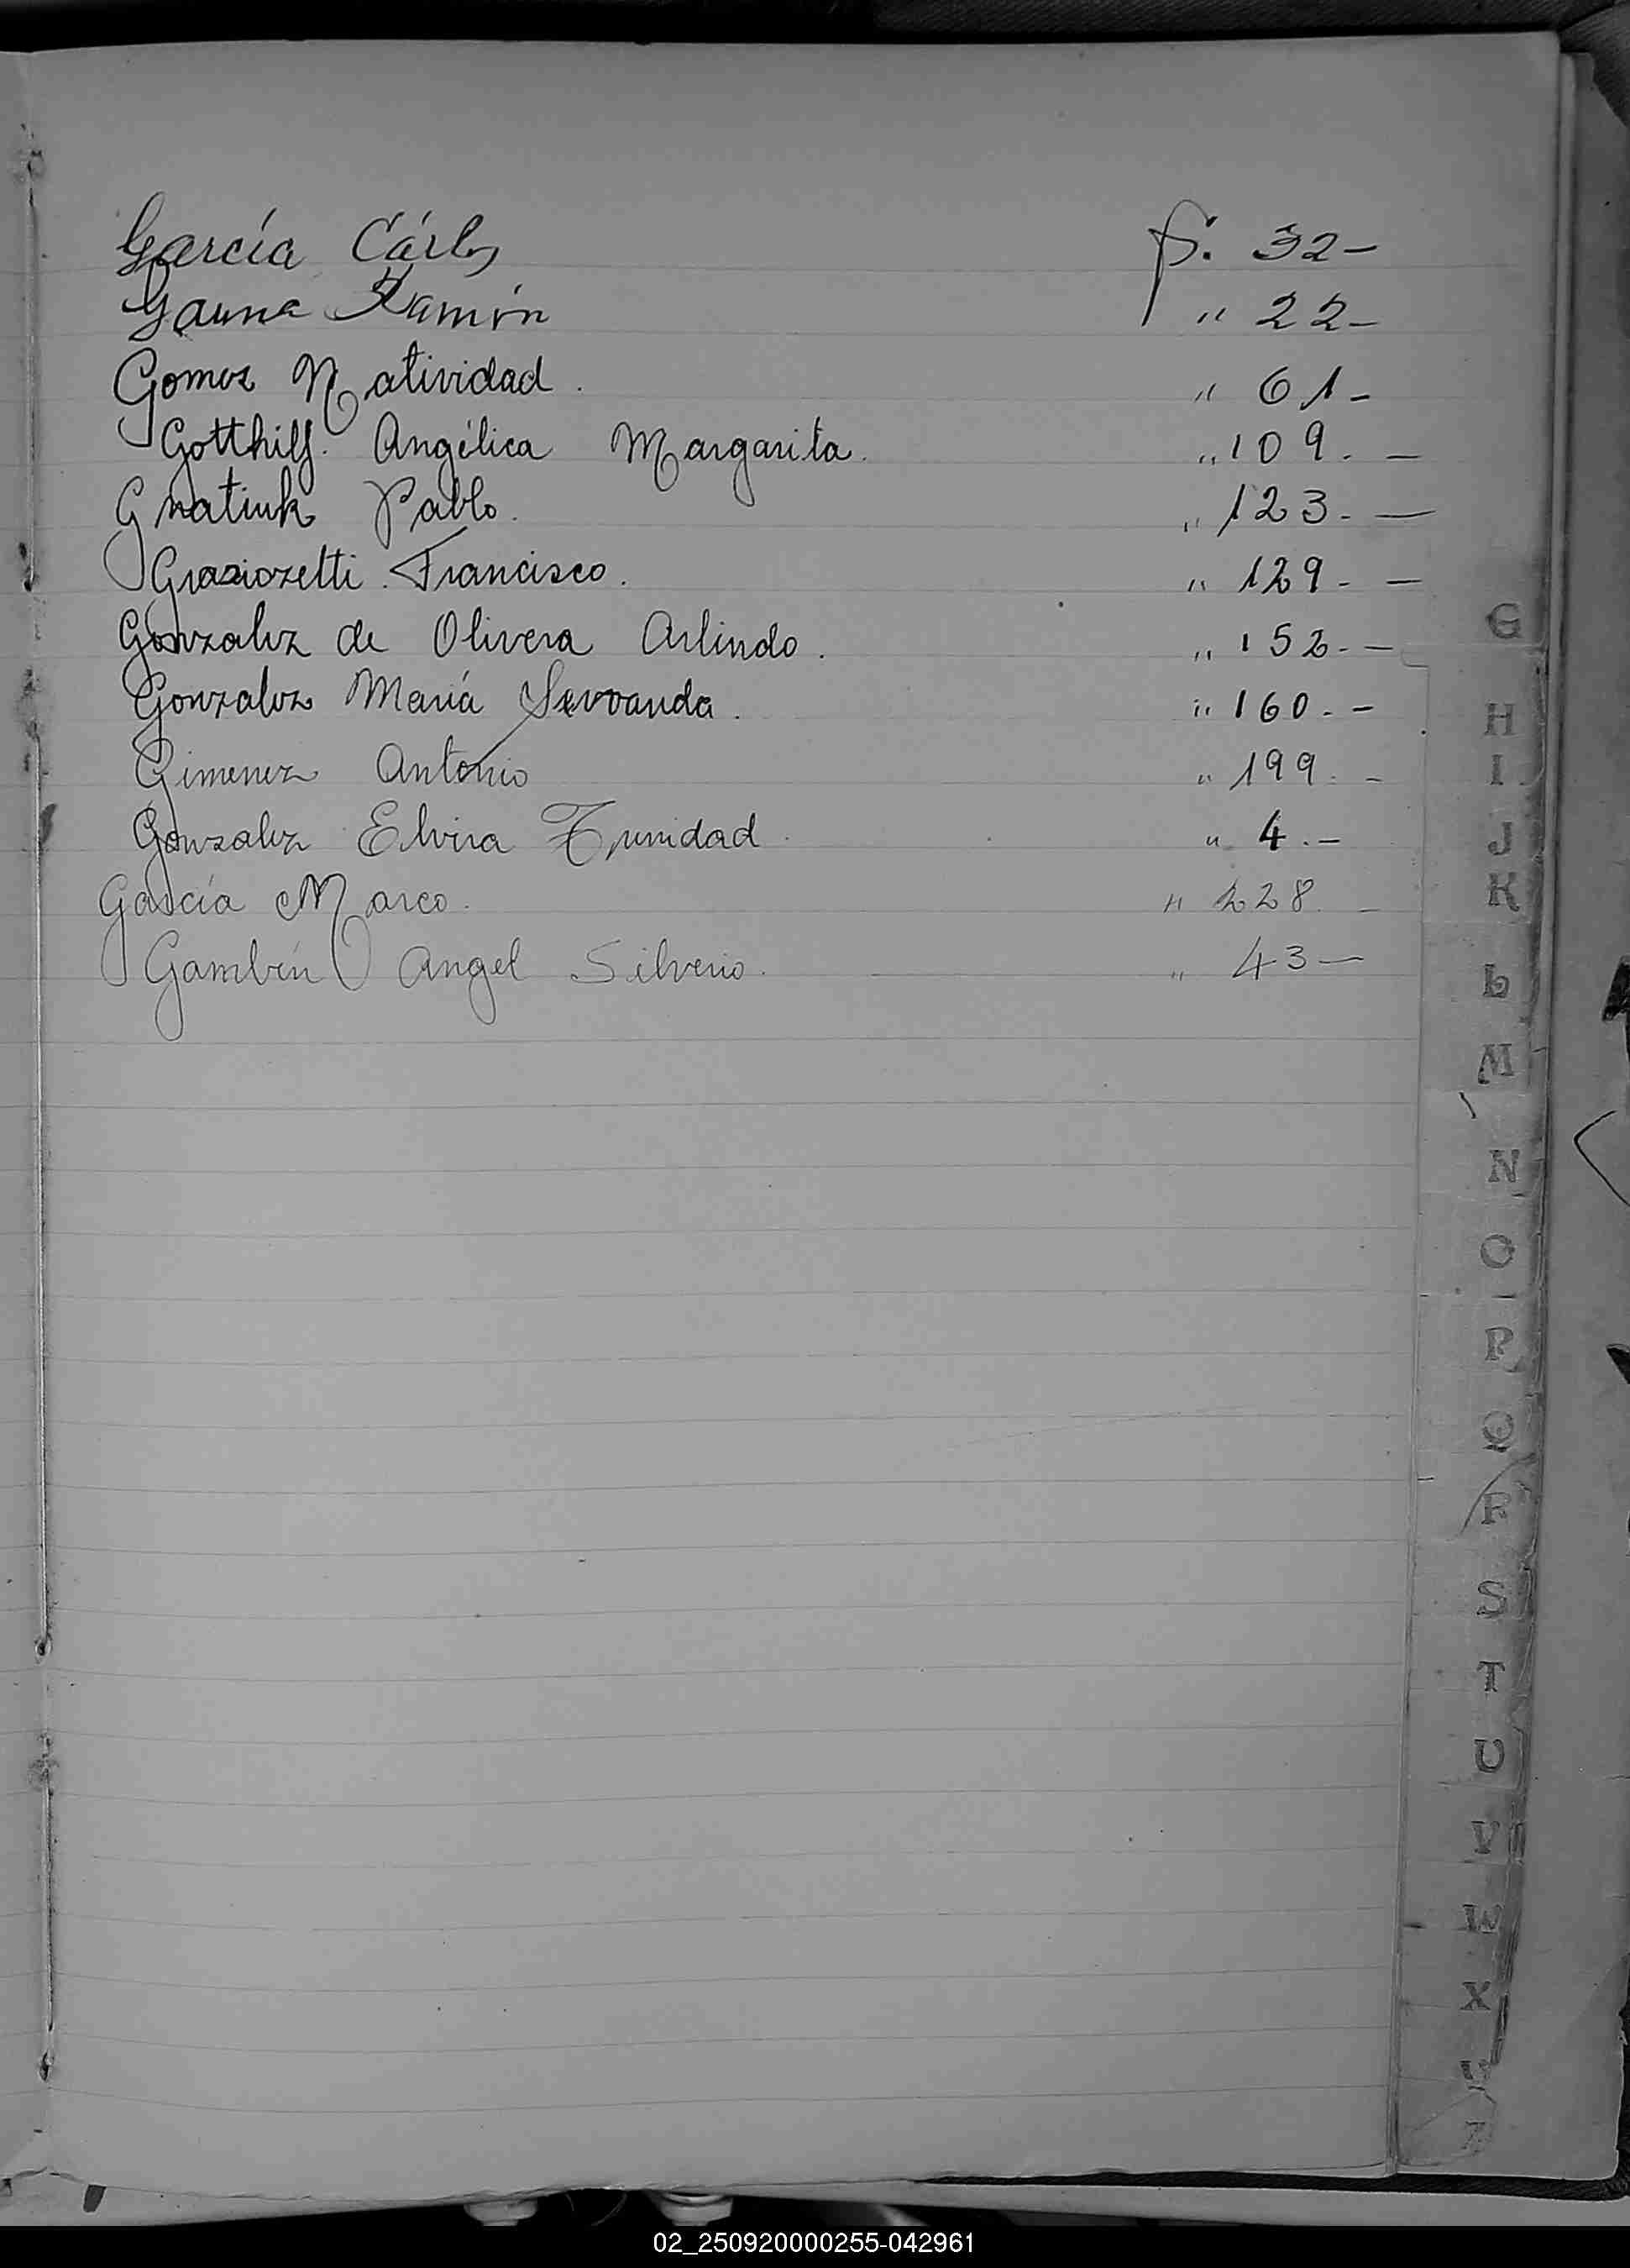 García Cárlos f. 32-
Gauna Ramón " 22-
Gomez Natividad. " 61-
Gotthilf. Angélica Margarita. " 109. -
Gnatiuk Pablo. " 123. -
Graziozetti Francisco. " 129. -
Gonzalez de Olivera Arlindo. " 152. -
Gonzalez María Servanda. " 160. -
Gimenez Antonio " 199. -
Gonzalez Elvira Trinidad. " 4. -
García Marco. " 228. -
Gambín Angel Silverio. " 43-
G
H
I
J
K
L
M
N
O
P
Q
R
S
T
U
V
W
X
Y
Z
02_250920000255-042961